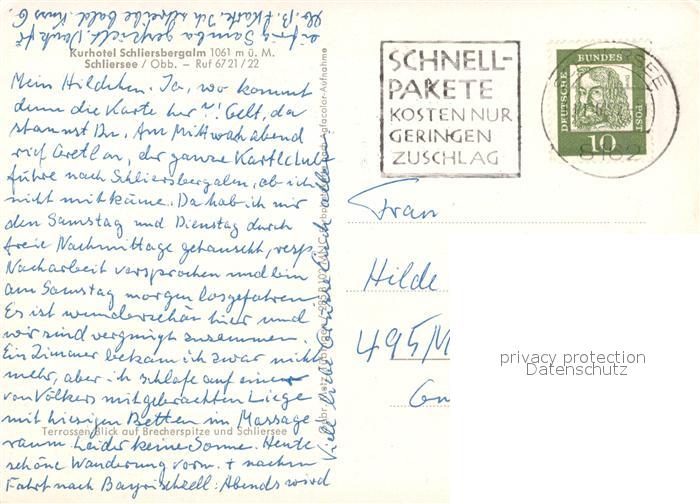 Kurhotel Schliersbergalm 1061 m ü. M.
Schliersee / Obb. - Ruf 67 21 / 22
Mein Hildchen. Ja, wo kommt
denn die Karte her?! Gelt, da
staunst Du. Am Mittwoch abend
rief Gretl an, der ganze Kartlclub
führe nach Schliersbergalm, ob ich
nicht mitkäme. Da hab ich mir
den Samstag und Dienstag durch
freie Nachmittage getauscht, resp.
Nacharbeit versprochen und bin
am Samstag morgen losgefahren.
Es ist wunderschön hier und
wir sind vergnügt zusammen.
Ein Zimmer bekam ich zwar nicht
mehr, aber ich schlafe auf einer
von Völkers mitgebrachten Liege
mit hiesigen Betten im Massage
raum. Leider keine Sonne. Heute
schöne Wanderung vorm. + nachm
Fahrt nach Bayrischzell. Abends wird
eifrig Samba gespielt.
Karte. Ich schreibe bald.
Viele liebe Grüße Euch allen
Terrassen-Blick auf Brecherspitze und Schliersee
Agfacolor-Aufnahme
SCHNELL-
PAKETE
KOSTEN NUR
GERINGEN
ZUSCHLAG
DEUTSCHE BUNDESPOST
10
8162
Frau
Hilde
495 M
privacy protection
Datenschutz